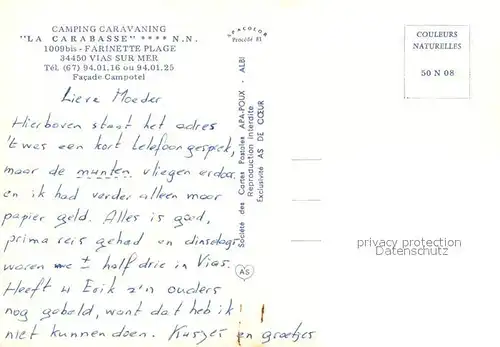 CAMPING CARAVANING
"LA CARABASSE" **** N.N.
1009bis - FARINETTE PLAGE
34450 VIAS SUR MER
Tél. (67) 94.01.16 ou 94.01.25
Façade Campotel
Lieve Moeder
Hierboven staat het adres
't was een kort telefoongesprek,
maar de munten vliegen erdoor
en ik had verder alleen maar
papier geld. Alles is goed,
prima reis gehad en dinsdags
waren we ± half drie in Vias.
Heeft u Erik z'n ouders
nog gebeld, want dat heb ik
niet kunnen doen. Kusjes en groetjes
APACOLOR
Procédé 81
Société des Cartes Postales APA-POUX - ALBI
Reproduction interdite
Exclusivité AS DE CŒUR
AS
COULEURS
NATURELLES
50 N 08
privacy protection
Datenschutz